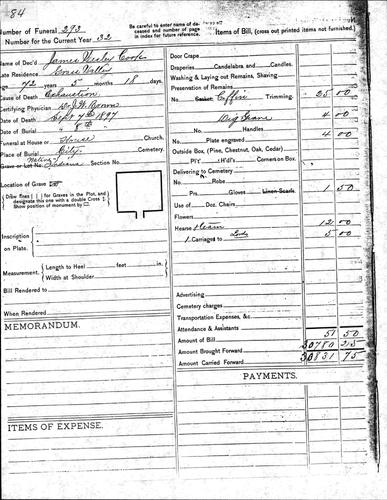 84
Number of Funeral 293
Number for the Current Year 32
Be careful to enter name of deceased and number of page in index for future reference.
Items of Bill, (cross out printed items not furnished.)
Name of Dec'd James Wesley Cook
Late Residence
Age 72 years 5 months 18 days
Cause of Death Exhaustion
Certifying Physician Dr. J. W. Brown
Date of Death Sept 7th 1897
Date of Burial " 8th "
Funeral at House or House Church.
Place of Burial City Cemetery.
Grave or Lot No. Section No.
Native Indiana
Location of Grave
(Draw lines for Graves in the Plot, and designate this one with a double Cross
Show position of monument by
Inscription on Plate.
Measurement.
Length to Heel feet in.
Width at Shoulder
Bill Rendered to
When Rendered
MEMORANDUM.
ITEMS OF EXPENSE.
Door Crape
Draperies Candelabra and Candles.
Washing & Laying out Remains, Shaving
Preservation of Remains
No. Casket Coffin Trimming. 25 00
Dig Grave 4 00
No. Handles.
Plate engraved 4 00
Outside Box, (Pine, Chestnut, Oak, Cedar)
Pl't H'd'l's Corners on Box.
Delivering to Cemetery
No. Robe
Prs. Gloves Linen Scarfs 1 50
Use of Doz. Chairs
Flowers
Hearse 12 00
1 Carriages to 5 00
Advertising
Cemetery charges
Transportation Expenses, &c.
Attendance & Assistants
Amount of Bill 51 50
Amount Brought Forward 30780 25
Amount Carried Forward 30831 75
PAYMENTS.